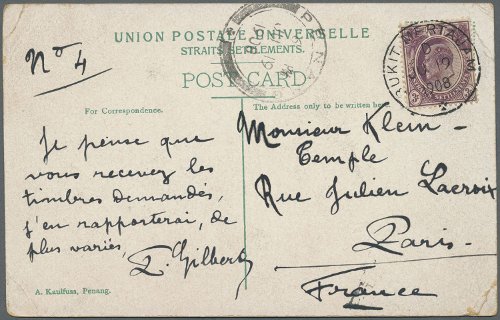 UNION POSTALE UNIVERSELLE
STRAITS SETTLEMENTS.
POST CARD
PENANG
BUKIT MERTAJAM
1908
No 4
For Correspondence.
The Address only to be written here.
Je pense que
vous recevez les
timbres demandés,
j'en rapporterai, de
plus variés,
L. Gilbert
Monsieur Klein-
Temple
Rue Julien Lacroix
Paris-
France
A. Kaulfuss, Penang.